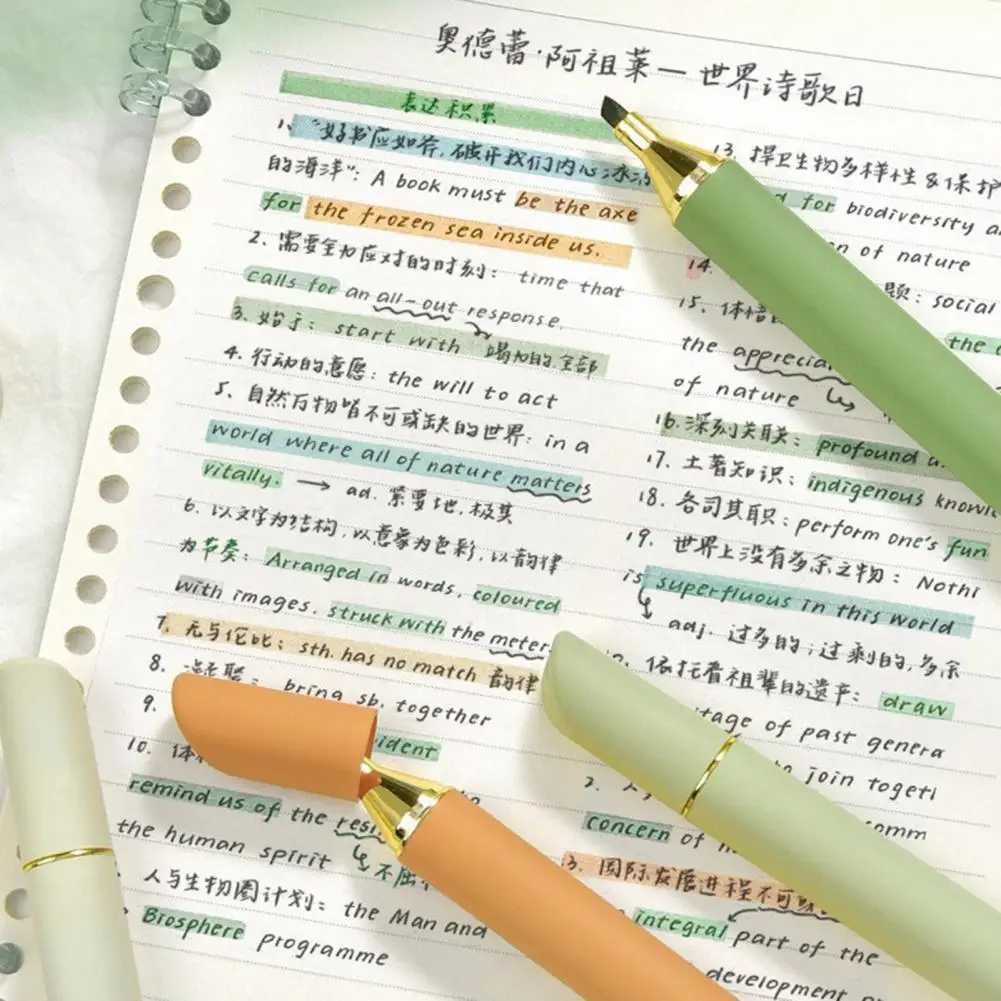 奥德蕾·阿祖莱—世界诗歌日
表达积累
1、"好书应如斧,破开我们内心冰冻
的海洋": A book must be the axe
for the frozen sea inside us.
2. 需要全力应对的时刻: time that
calls for an all-out response.
3. 始于: start with 竭力的,全部
4. 行动的意愿: the will to act
5. 自然万物皆不可或缺的世界: in a
world where all of nature matters
vitally. → ad. 紧要地,极其
6. 以文字为结构,以意象为色彩,以韵律
为节奏: Arranged in words, coloured
with images, struck with the meter
7. 无与伦比: sth. has no match 韵律
8. bring sb. together
9.
10. 体
remind us of the
the human spirit 不屈
人与生物圈计划: the Man and
Biosphere programme
13. 捍卫生物多样性&保护
for biodiversity
of nature
14.
15. 体悟 题: social
the
of nature
16. 深刻关联: profound
17. 土著知识: indigenous
18. 各司其职: perform one's fun
19. 世界上没有多余之物: Nothi
is superfluous in this world
adj. 过多的;过剩的,多余
依托着祖辈的遗产: draw
of past genera
join togeti
2.
concern of
3. 国际发展进程不可或
integral part of the
development